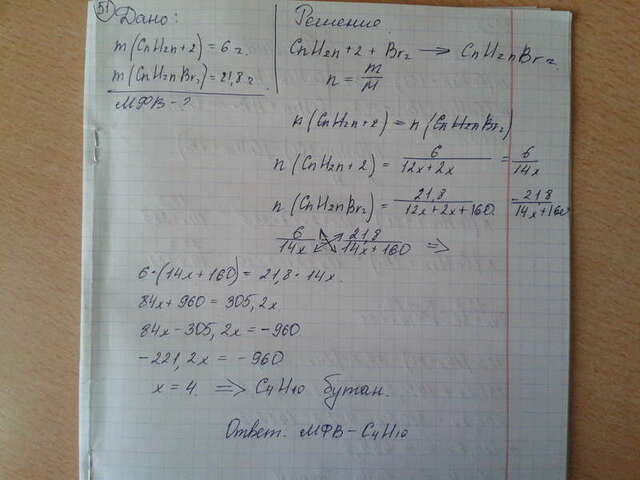 51 Дано:
m(CnH2n+2) = 6 г.
m(CnH2nBr2) = 21,8 г
МФВ - ?
Решение.
CnH2n+2 + Br2 → CnH2nBr2.
n = m/M
n(CnH2n+2) = n(CnH2nBr2)
n(CnH2n+2) = 6/(12x+2x) = 6/14x
n(CnH2nBr2) = 21,8/(12x+2x+160) = 21,8/(14x+160)
6/14x = 21,8/(14x+160) =>
6·(14x+160) = 21,8·14x.
84x+960 = 305,2x
84x-305,2x = -960
-221,2x = -960
x = 4. => C4H10 бутан.
Ответ: МФВ - C4H10